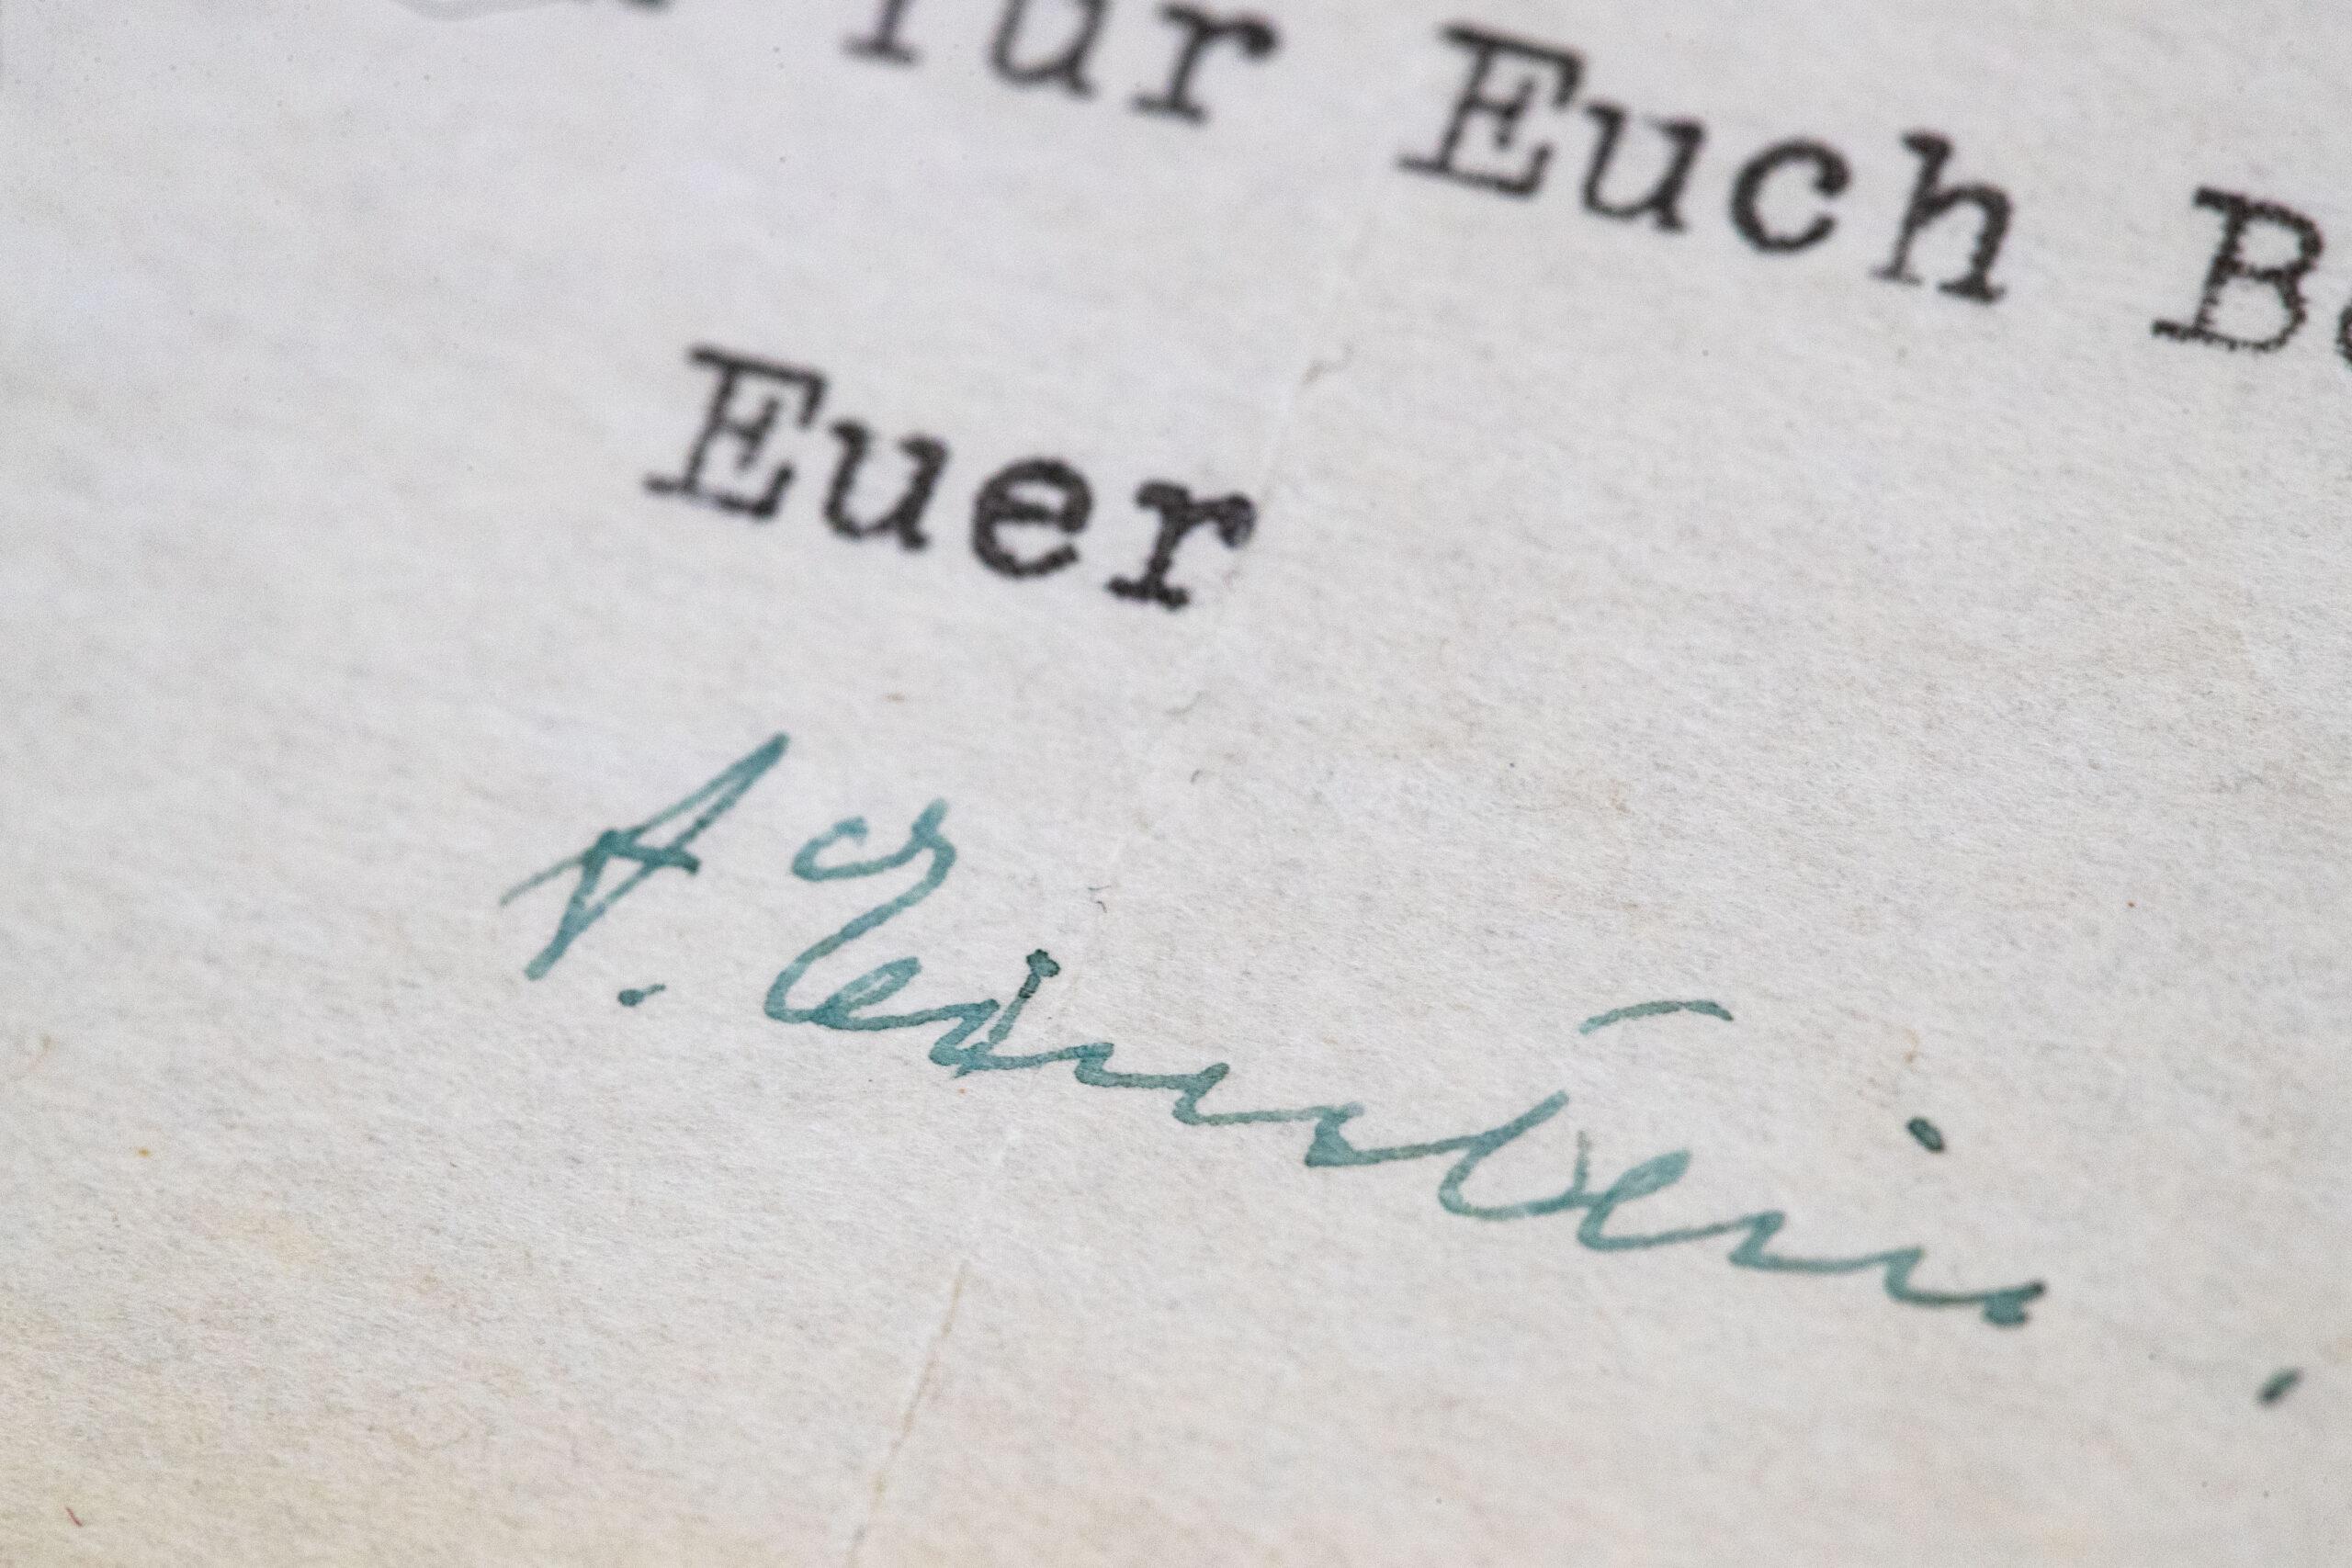 für Euch
Euer
A. Einstein.